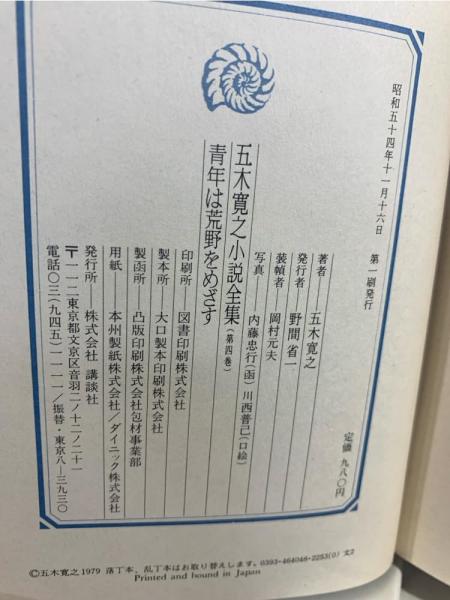 昭和五十四年十一月十六日　第一刷発行
定価　九八〇円
著者――五木寛之
発行者――野間省一
装幀者――岡村元夫
写真――内藤忠行(函)　川西普己(口絵)
五木寛之小説全集(第四巻)
青年は荒野をめざす
印刷所――図書印刷株式会社
製本所――大口製本印刷株式会社
製函所――凸版印刷株式会社包材事業部
用紙――本州製紙株式会社/ダイニック株式会社
発行所――株式会社 講談社
〒一一二東京都文京区音羽二ノ十二ノ二十一
電話〇三(九四五)一一一一/振替・東京八―三九三〇
©五木寛之1979 落丁本、乱丁本はお取り替えします。0393-464046-2253(0) 文2
Printed and bound in Japan